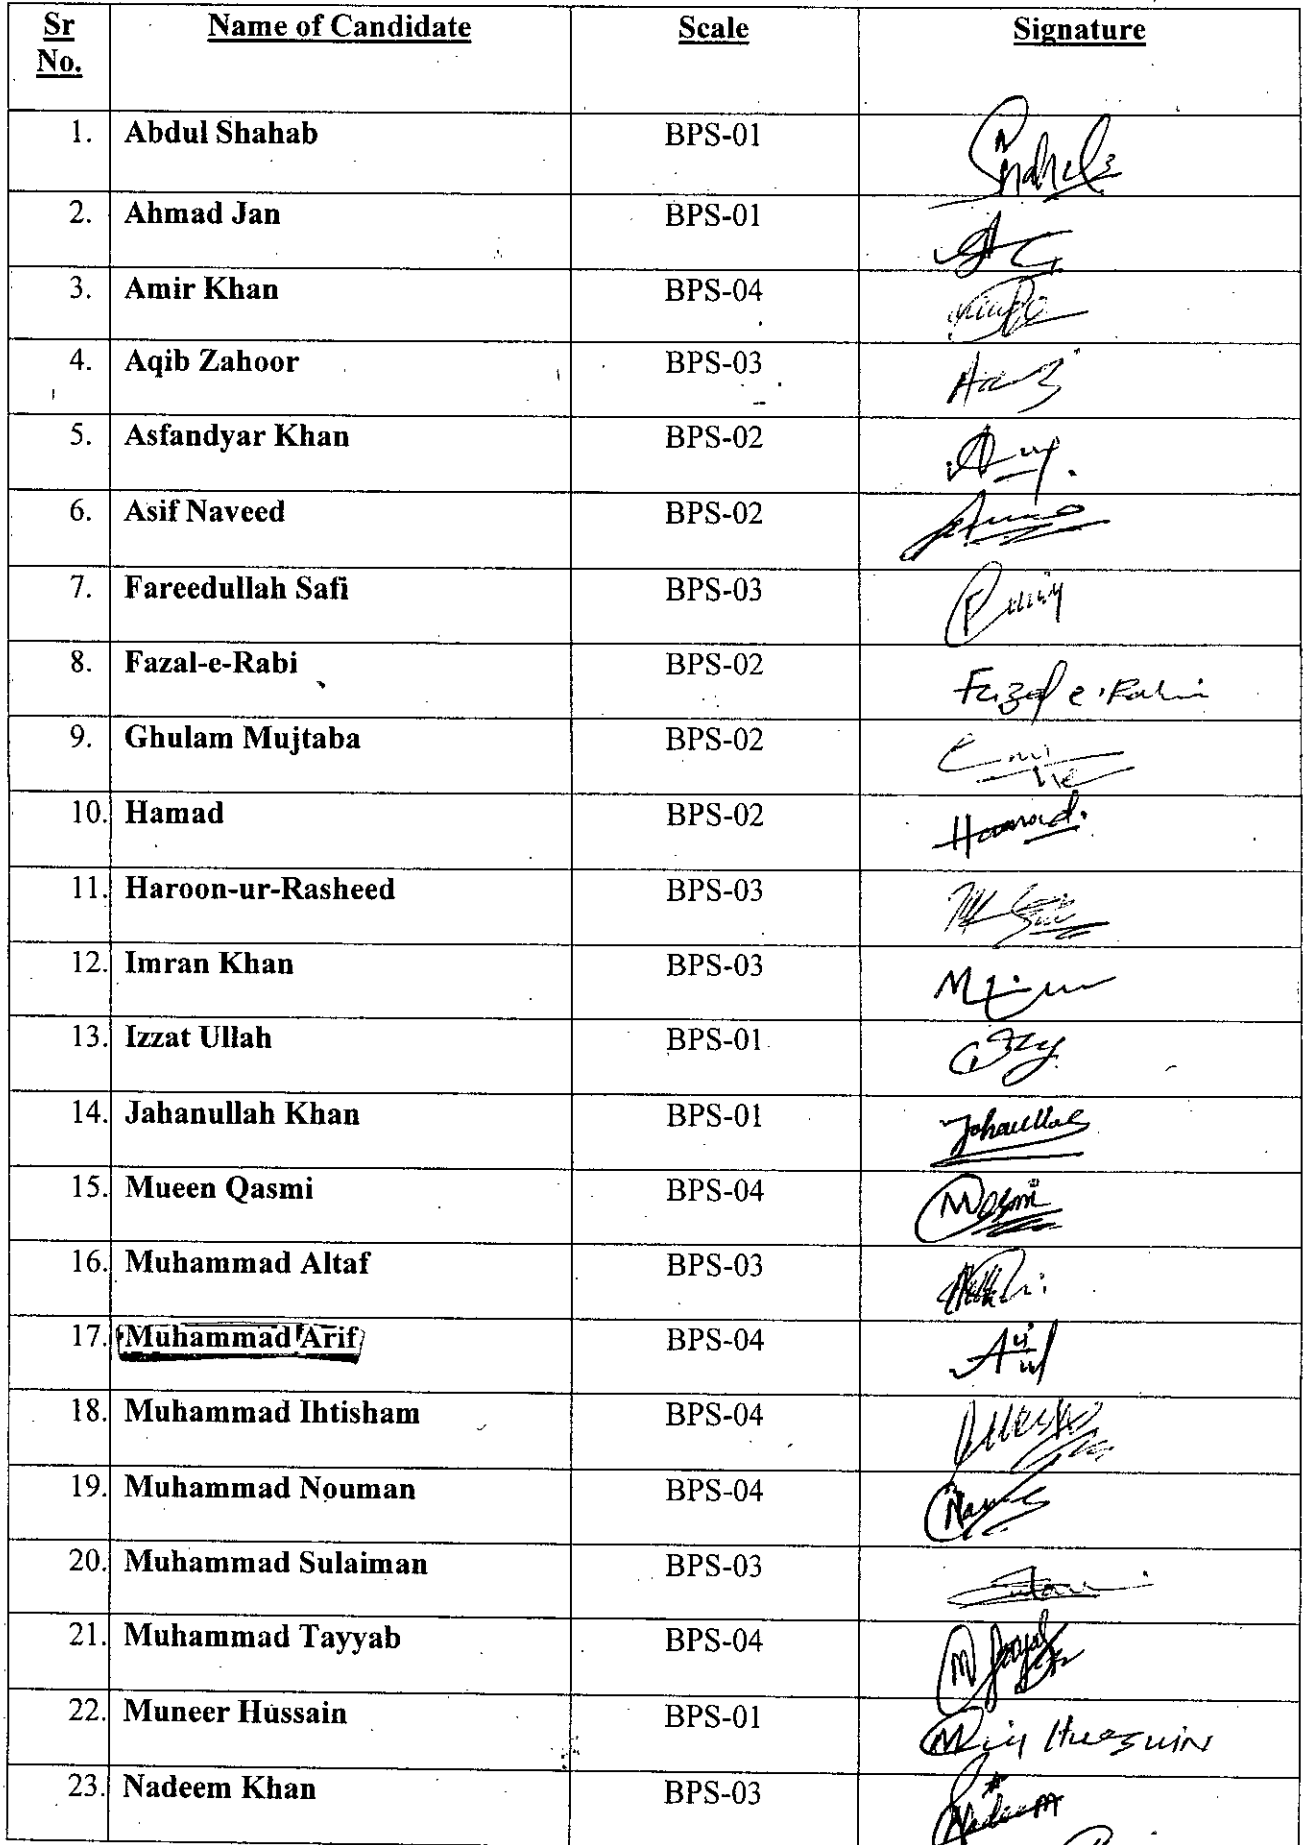 Sr No. Name of Candidate Scale Signature
1. Abdul Shahab BPS-01
2. Ahmad Jan BPS-01
3. Amir Khan BPS-04
4. Aqib Zahoor BPS-03
5. Asfandyar Khan BPS-02
6. Asif Naveed BPS-02
7. Fareedullah Safi BPS-03
8. Fazal-e-Rabi BPS-02 Fazal e
9. Ghulam Mujtaba BPS-02
10. Hamad BPS-02 Hamad.
11. Haroon-ur-Rasheed BPS-03
12. Imran Khan BPS-03
13. Izzat Ullah BPS-01
14. Jahanullah Khan BPS-01
15. Mueen Qasmi BPS-04
16. Muhammad Altaf BPS-03
17. Muhammad Arif BPS-04
18. Muhammad Ihtisham BPS-04
19. Muhammad Nouman BPS-04
20. Muhammad Sulaiman BPS-03
21. Muhammad Tayyab BPS-04
22. Muneer Hussain BPS-01
23. Nadeem Khan BPS-03 Nadeem